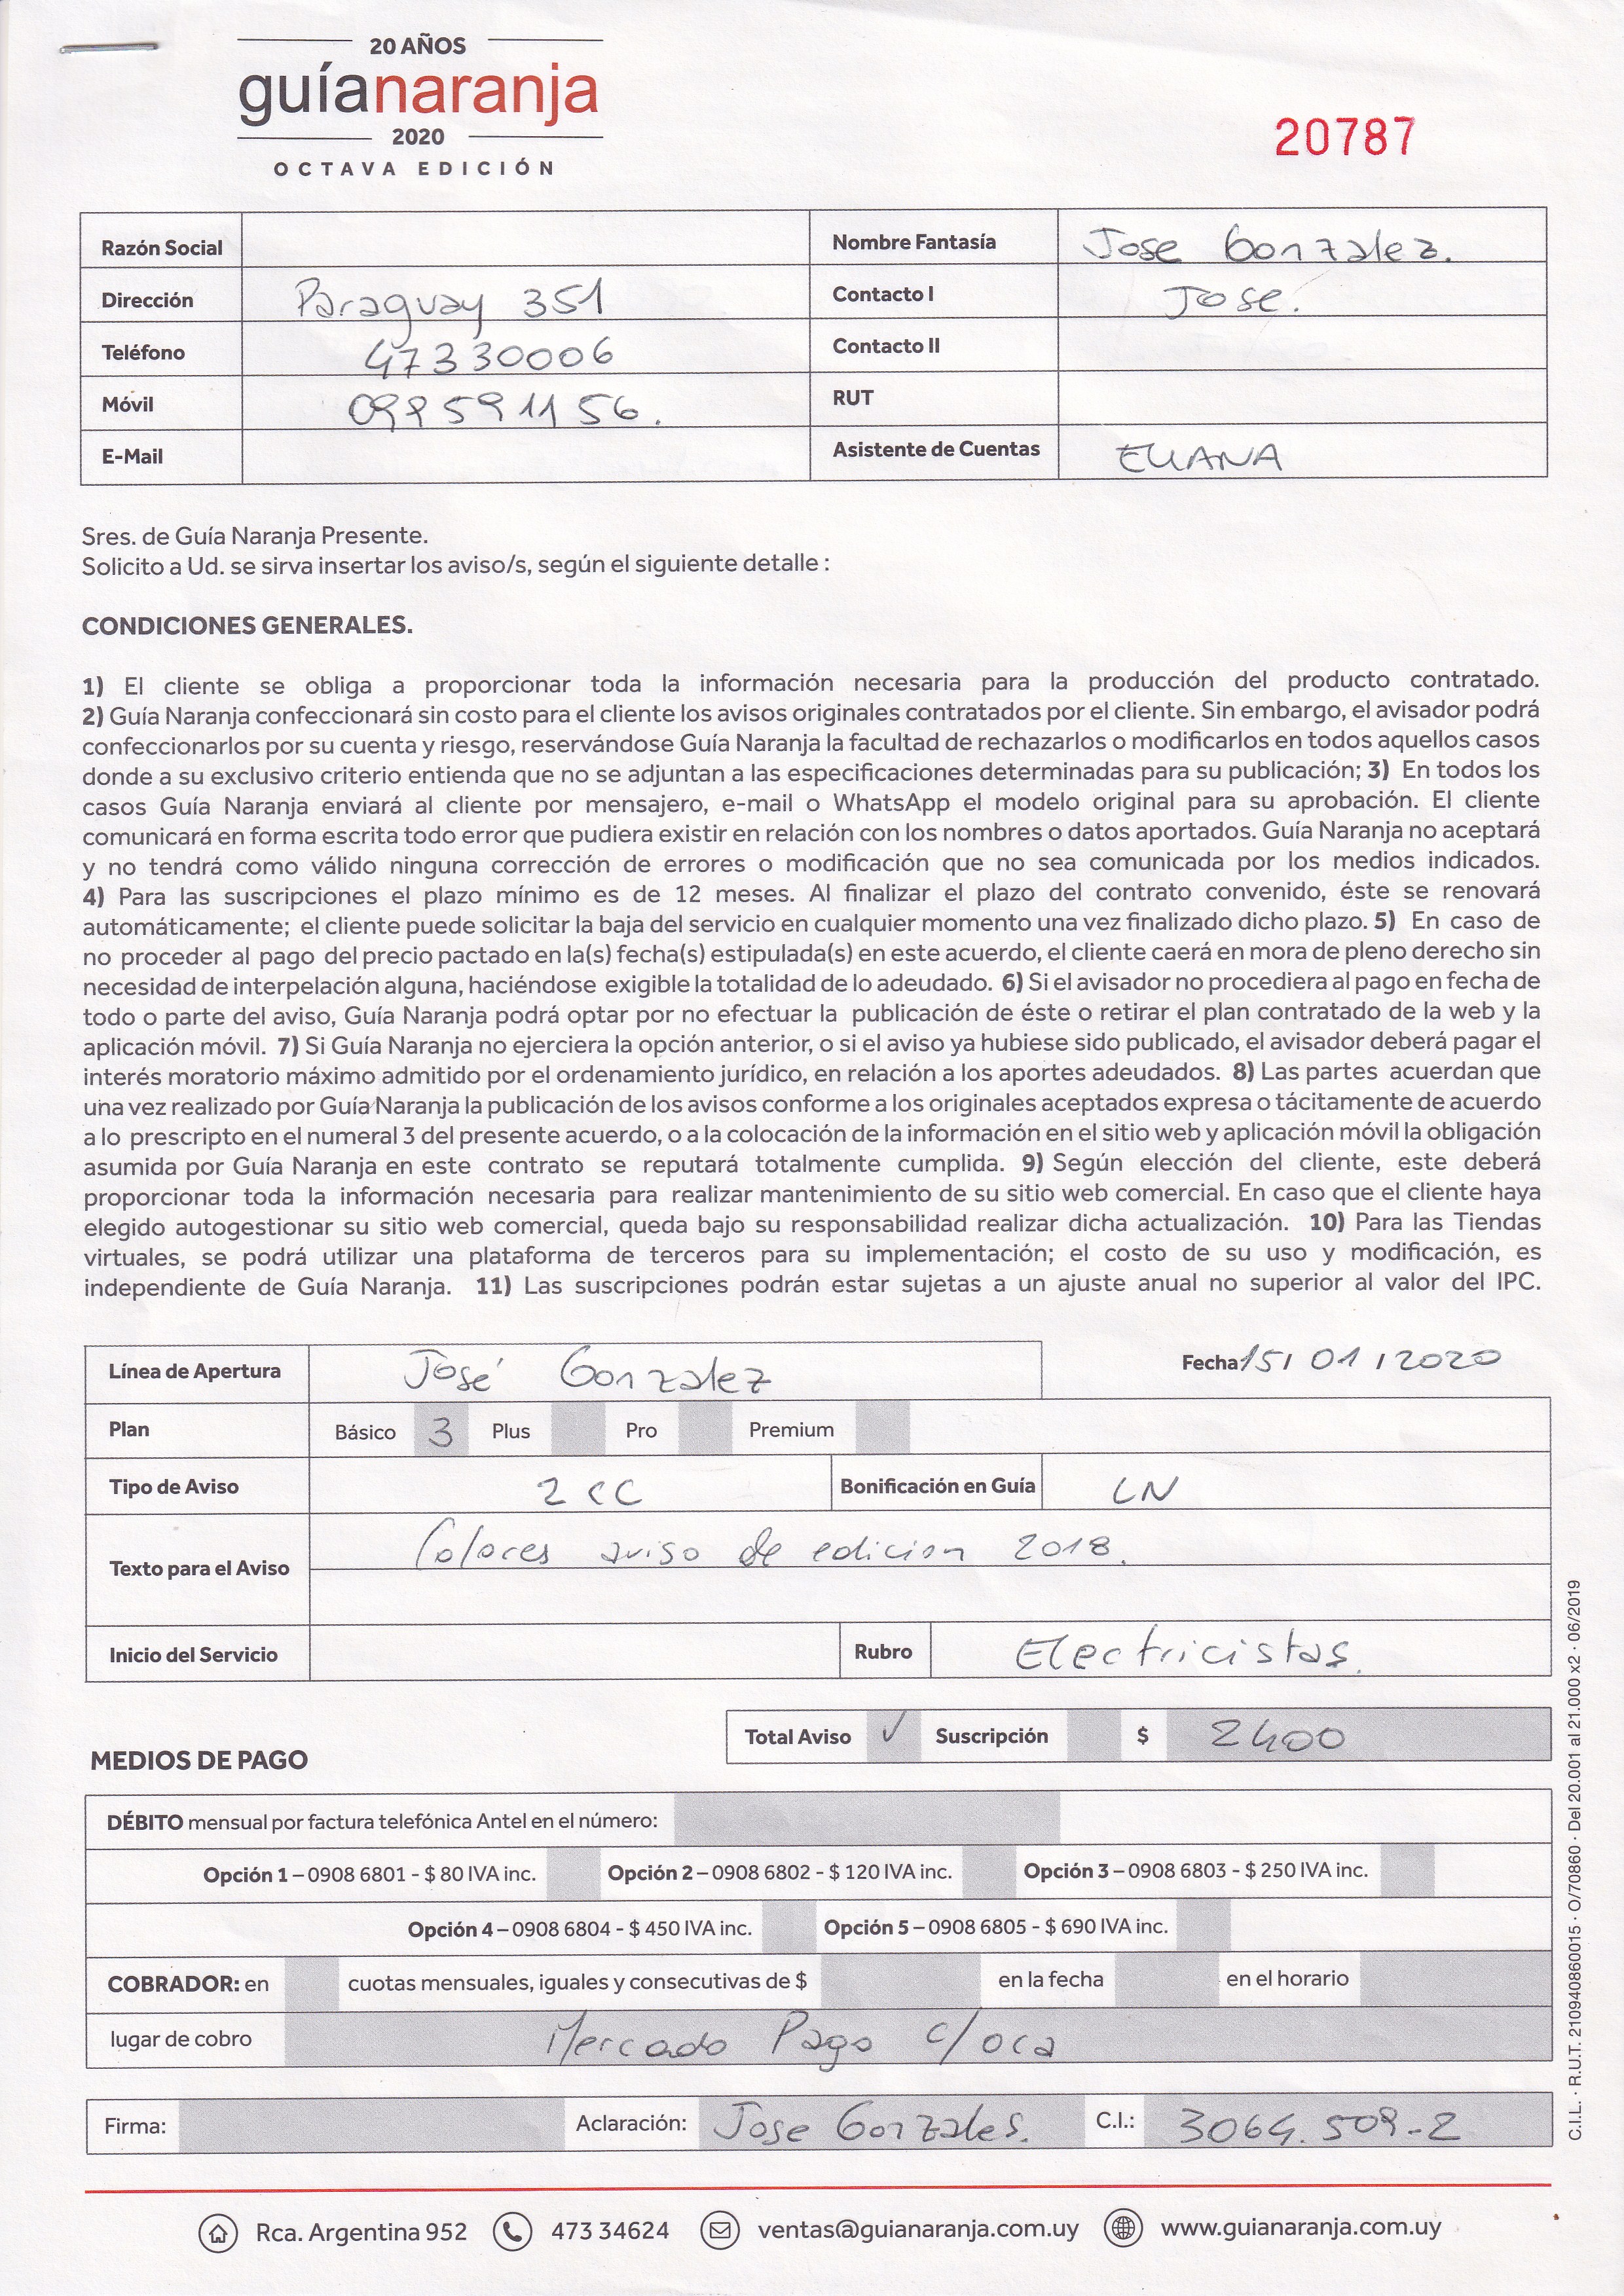 20 AÑOS
guíanaranja
2020
OCTAVA EDICIÓN
20787
Razón Social
Nombre Fantasía Jose Gonzalez.
Dirección Paraguay 351
Contacto I Jose.
Teléfono 47330006
Contacto II
Móvil 099591156.
RUT
E-Mail
Asistente de Cuentas ELIANA
Sres. de Guía Naranja Presente.
Solicito a Ud. se sirva insertar los aviso/s, según el siguiente detalle :
CONDICIONES GENERALES.
1) El cliente se obliga a proporcionar toda la información necesaria para la producción del producto contratado.
2) Guía Naranja confeccionará sin costo para el cliente los avisos originales contratados por el cliente. Sin embargo, el avisador podrá
confeccionarlos por su cuenta y riesgo, reservándose Guía Naranja la facultad de rechazarlos o modificarlos en todos aquellos casos
donde a su exclusivo criterio entienda que no se adjuntan a las especificaciones determinadas para su publicación; 3) En todos los
casos Guía Naranja enviará al cliente por mensajero, e-mail o WhatsApp el modelo original para su aprobación. El cliente
comunicará en forma escrita todo error que pudiera existir en relación con los nombres o datos aportados. Guía Naranja no aceptará
y no tendrá como válido ninguna corrección de errores o modificación que no sea comunicada por los medios indicados.
4) Para las suscripciones el plazo mínimo es de 12 meses. Al finalizar el plazo del contrato convenido, éste se renovará
automáticamente; el cliente puede solicitar la baja del servicio en cualquier momento una vez finalizado dicho plazo. 5) En caso de
no proceder al pago del precio pactado en la(s) fecha(s) estipulada(s) en este acuerdo, el cliente caerá en mora de pleno derecho sin
necesidad de interpelación alguna, haciéndose exigible la totalidad de lo adeudado. 6) Si el avisador no procediera al pago en fecha de
todo o parte del aviso, Guía Naranja podrá optar por no efectuar la publicación de éste o retirar el plan contratado de la web y la
aplicación móvil. 7) Si Guía Naranja no ejerciera la opción anterior, o si el aviso ya hubiese sido publicado, el avisador deberá pagar el
interés moratorio máximo admitido por el ordenamiento jurídico, en relación a los aportes adeudados. 8) Las partes acuerdan que
una vez realizado por Guía Naranja la publicación de los avisos conforme a los originales aceptados expresa o tácitamente de acuerdo
a lo prescripto en el numeral 3 del presente acuerdo, o a la colocación de la información en el sitio web y aplicación móvil la obligación
asumida por Guía Naranja en este contrato se reputará totalmente cumplida. 9) Según elección del cliente, este deberá
proporcionar toda la información necesaria para realizar mantenimiento de su sitio web comercial. En caso que el cliente haya
elegido autogestionar su sitio web comercial, queda bajo su responsabilidad realizar dicha actualización. 10) Para las Tiendas
virtuales, se podrá utilizar una plataforma de terceros para su implementación; el costo de su uso y modificación, es
independiente de Guía Naranja. 11) Las suscripciones podrán estar sujetas a un ajuste anual no superior al valor del IPC.
Línea de Apertura José Gonzalez
Fecha 15/ 01 / 2020
Plan Básico 3 Plus Pro Premium
Tipo de Aviso 2 CC Bonificación en Guía LN
Texto para el Aviso Colores aviso de edicion 2018.
Inicio del Servicio Rubro Electricistas.
Total Aviso ✓ Suscripción $ 2400
MEDIOS DE PAGO
DÉBITO mensual por factura telefónica Antel en el número:
Opción 1 – 0908 6801 - $ 80 IVA inc. Opción 2 – 0908 6802 - $ 120 IVA inc. Opción 3 – 0908 6803 - $ 250 IVA inc.
Opción 4 – 0908 6804 - $ 450 IVA inc. Opción 5 – 0908 6805 - $ 690 IVA inc.
COBRADOR: en cuotas mensuales, iguales y consecutivas de $ en la fecha en el horario
lugar de cobro Mercado Pago c/oca
Firma: Aclaración: Jose Gonzales. C.I.: 3064.509-2
Rca. Argentina 952 473 34624 ventas@guianaranja.com.uy www.guianaranja.com.uy
C.I.L. · R.U.T. 210940860015 · O/70860 · Del 20.001 al 21.000 x2 · 06/2019